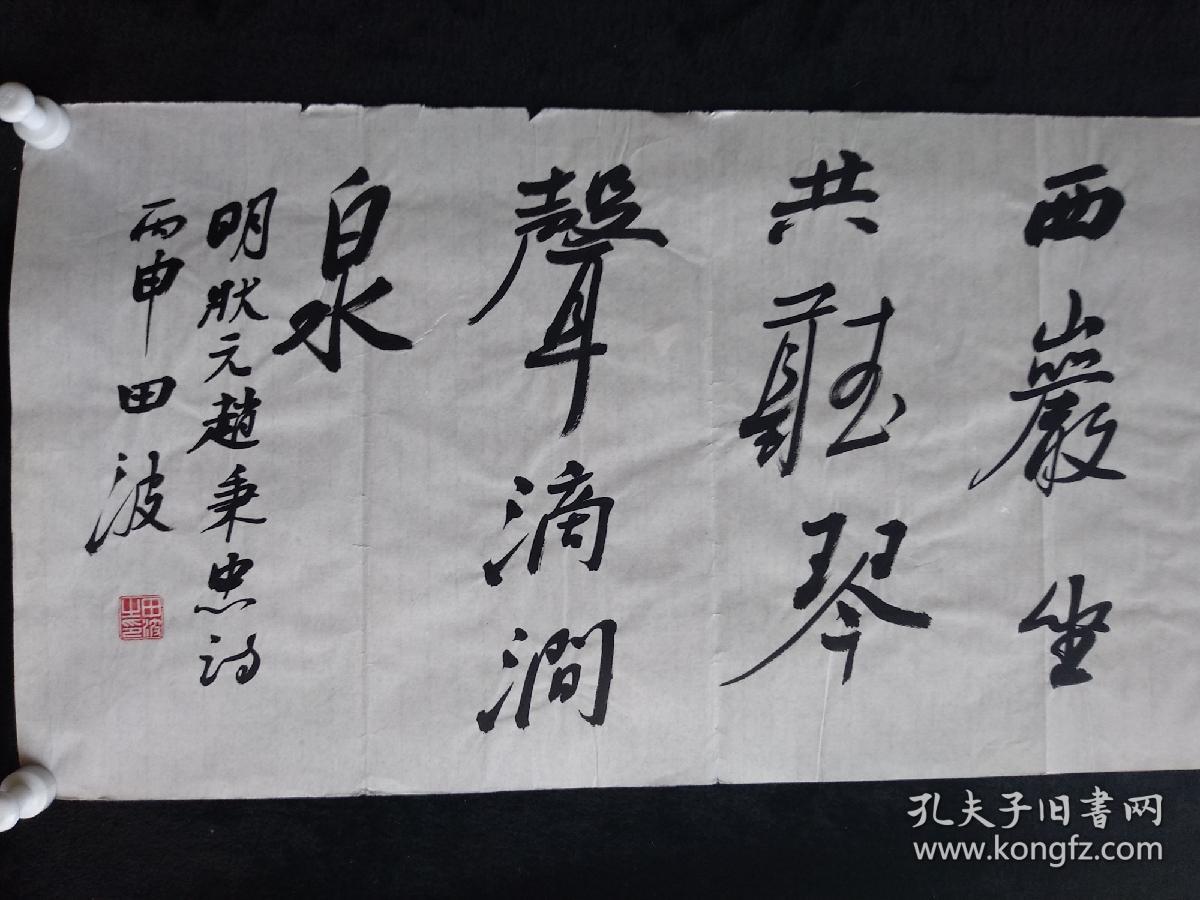 西巖坐
共聽琴
聲滴澗
泉
明狀元趙秉忠詩
丙申田波
田波之印
孔夫子旧書网
www.kongfz.com